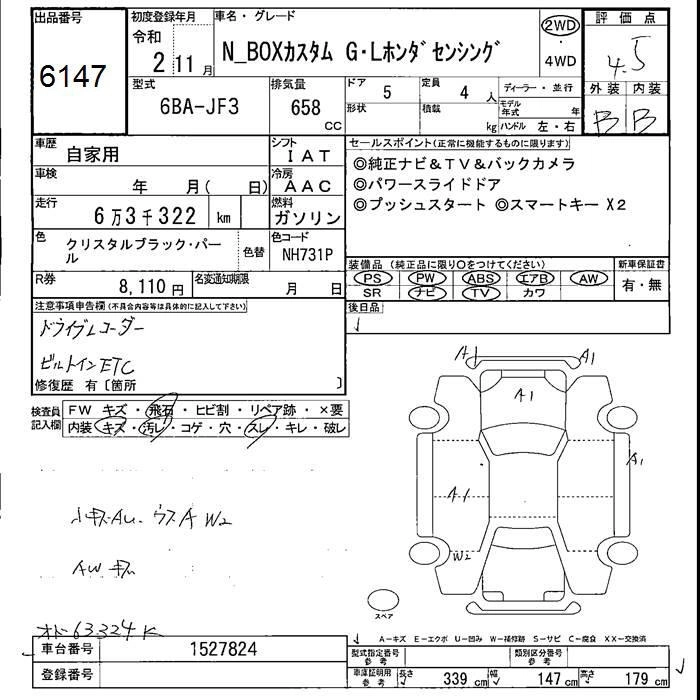 出品番号
6147
初度登録年月
令和
2 11 月
車名・グレード
N_BOXカスタム G・Lホンダセンシング
2WD
・
4WD
評価点
4.5
外装 内装
B B
型式
6BA-JF3
排気量
658
CC
ドア
5
定員
4 人
形状
積載
kg
ディーラー・並行
モデル年式 年
ハンドル 左・右
車歴
自家用
シフト
IAT
車検
年 月( 日)
冷房
AAC
走行
6万3千322 km
燃料
ガソリン
色
クリスタルブラック・パール
色替
色コード
NH731P
R券
8,110円
名変通知期限
月 日
セールスポイント(正常に機能するものに限ります)
◎純正ナビ&TV&バックカメラ
◎パワースライドドア
◎プッシュスタート ◎スマートキー X2
装備品(純正品に限り○をつけてください)
新車保証書
PS PW ABS エアB AW
SR ナビ TV カワ
有・無
後日品
注意事項申告欄(不具合内容等は具体的に記入して下さい)
ドライブレコーダー
ビルトインETC
修復歴 有〔箇所 〕
検査員記入欄
FW キズ・飛石・ヒビ割・リペア跡・×要
内装 キズ・汚レ・コゲ・穴・スレ・キレ・破レ
A1
A1
A1
A1
W2
小キズAU. ウスA W2
AW キズ
オド63324K
スペア
A-キズ E-エクボ U-凹み W-補修跡 S-サビ C-腐食 XX-交換済
車台番号
1527824
登録番号
型式指定番号 参考
類別区分番号 参考
車庫証明用 参考
長さ 339 cm
幅 147 cm
高さ 179 cm